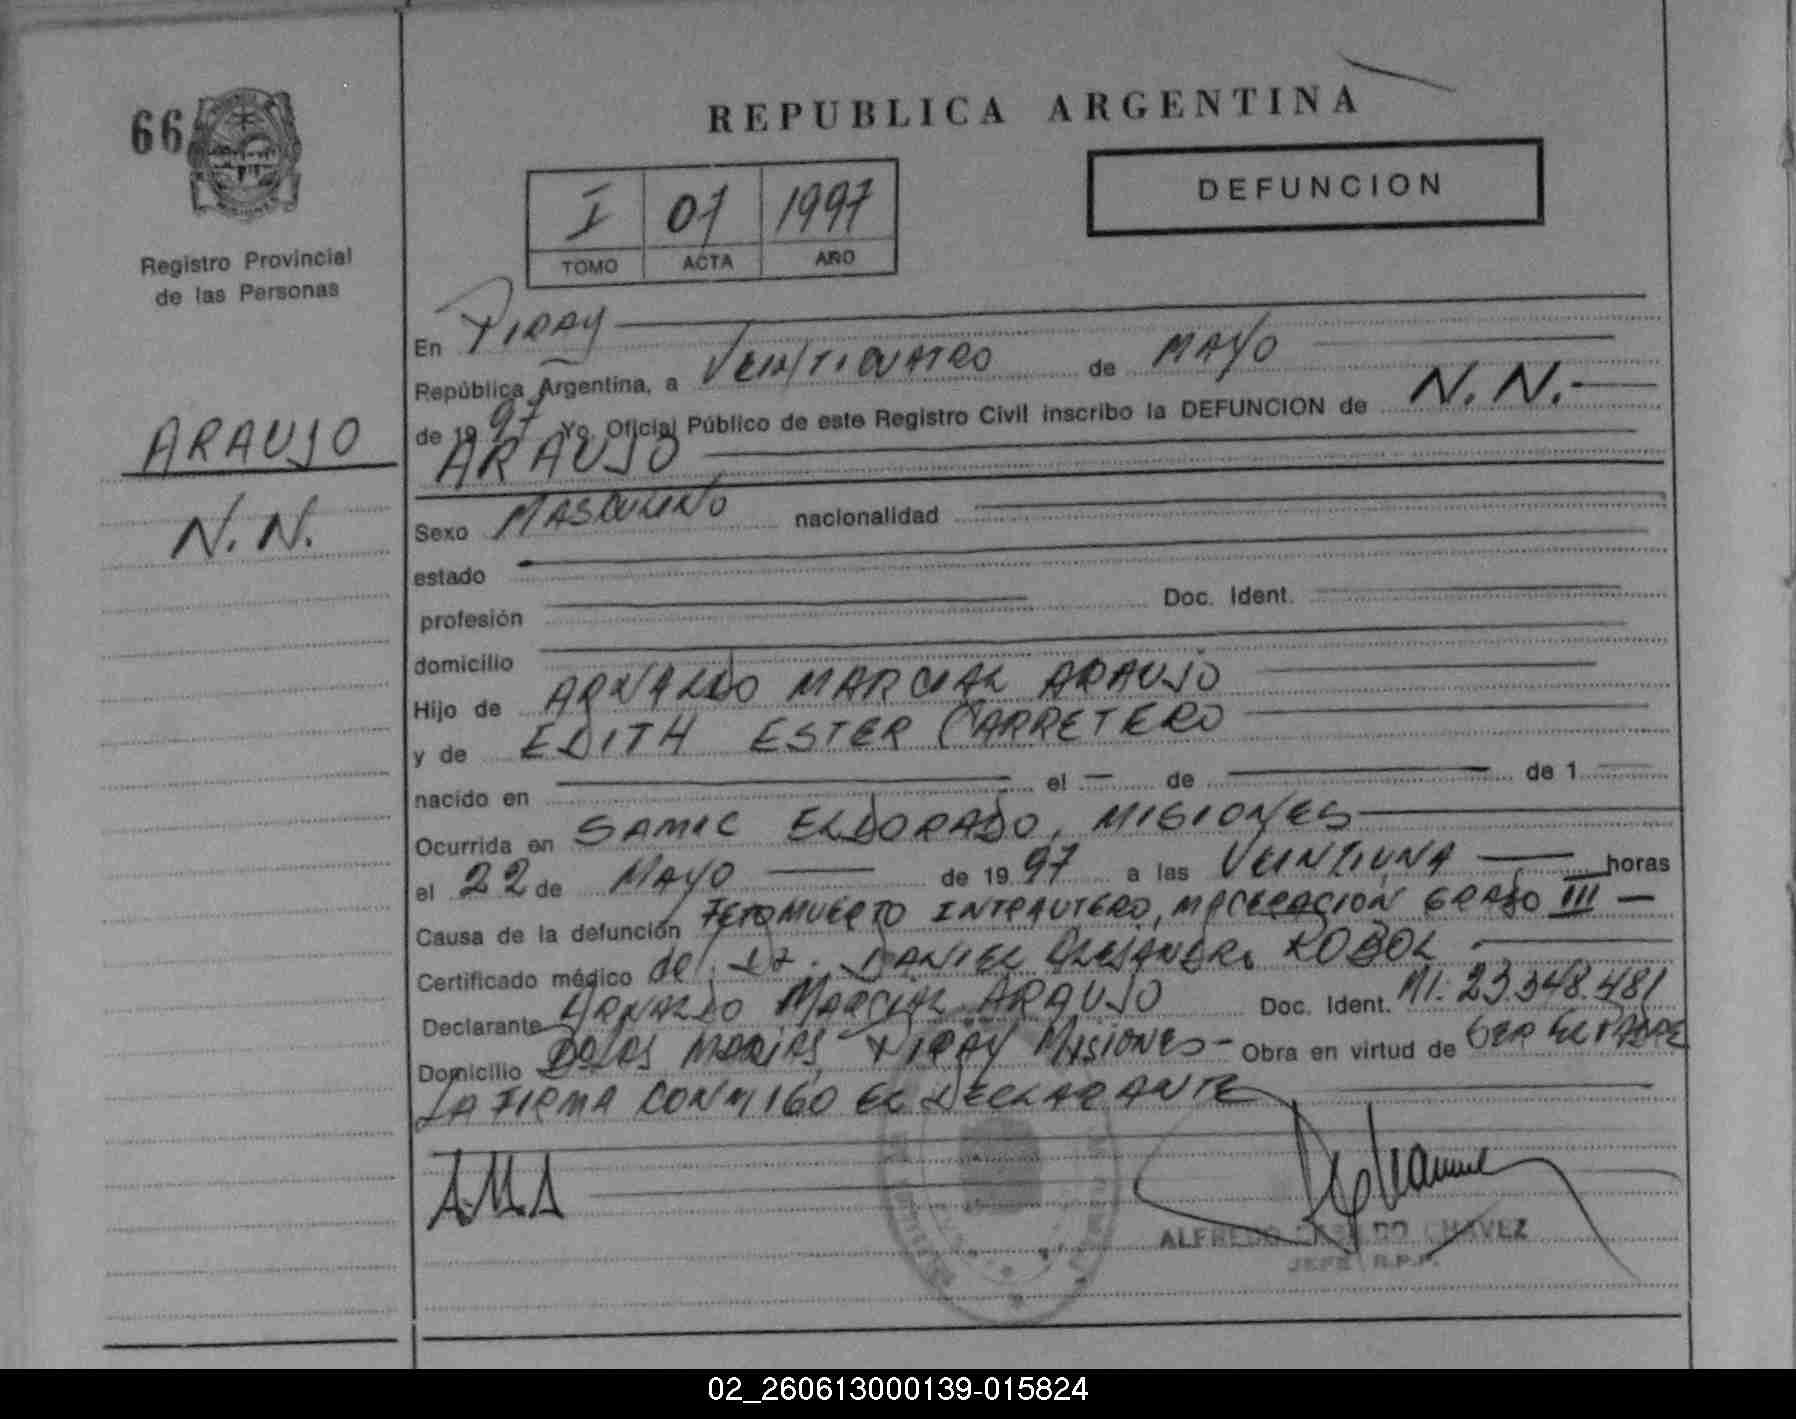 REPUBLICA ARGENTINA
66
I 07 1997
TOMO ACTA AÑO
DEFUNCION
Registro Provincial
de las Personas
ARAUJO
N.N.
En PIRAY
República Argentina, a VEINTICUATRO de MAYO
de 1997 Yo, Oficial Público de este Registro Civil inscribo la DEFUNCION de N.N.-
ARAUJO
Sexo MASCULINO nacionalidad
estado
profesión Doc. Ident.
domicilio
Hijo de ARNALDO MARCIAL ARAUJO
y de EDITH ESTER CARRETERO
nacido en el — de de 1
Ocurrida en SAMIC ELDORADO, MISIONES
el 22 de MAYO de 1997 a las VEINTIUNA horas
Causa de la defunción FETO MUERTO INTRAUTERO, MACERACION GRADO III —
Certificado médico del Dr. DANIEL ALEJANDRO ROBOL
Declarante ARNALDO MARCIAL ARAUJO Doc. Ident. MI. 23.348.481
Domicilio MARIAS, PIRAY MISIONES- Obra en virtud de SER EL PADRE
LA FIRMA CONMIGO EL DECLARANTE
A.M.A
ALFREDO CHAVEZ
JEFE R.P.P.
02_260613000139-015824